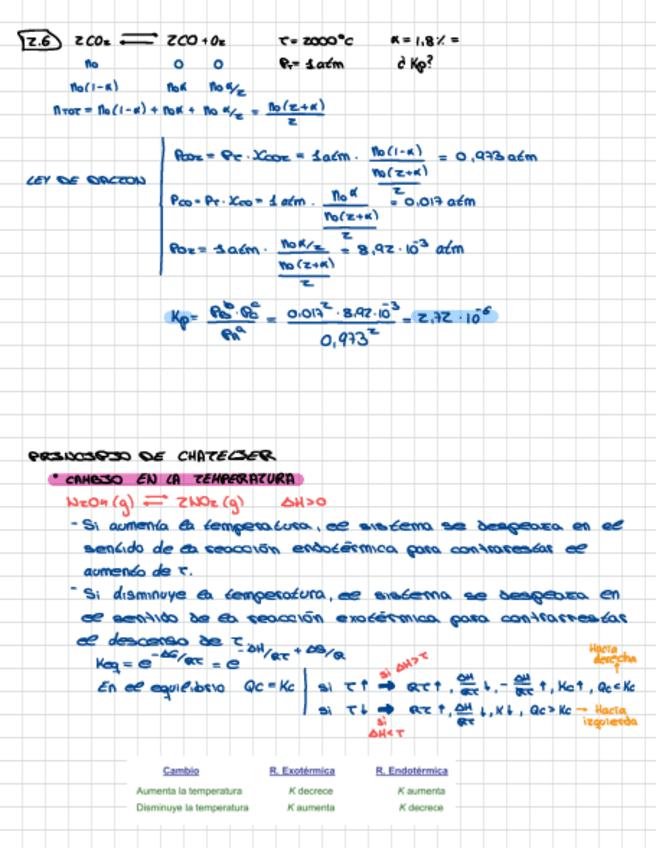 2.6 2CO₂ ⇌ 2CO + O₂ T = 2000°C α = 1,8% =
n₀ 0 0 P_T = 1 atm ¿Kp?
n₀(1-α) n₀α n₀α/2
n_TOT = n₀(1-α) + n₀α + n₀ α/2 = n₀(2+α)/2
LEY DE DALTON
P_CO₂ = P_T · X_CO₂ = 1 atm · n₀(1-α) / (n₀(2+α)/2) = 0,973 atm
P_CO = P_T · X_CO = 1 atm · n₀α / (n₀(2+α)/2) = 0,017 atm
P_O₂ = 1 atm · n₀α/2 / (n₀(2+α)/2) = 8,92 · 10⁻³ atm
Kp = P_B^b · P_C^c / P_A^a = 0,017² · 8,92·10⁻³ / 0,973² = 2,72 · 10⁻⁶
PRINCIPIO DE CHATELIER
• CAMBIO EN LA TEMPERATURA
N₂O₄ (g) ⇌ 2NO₂ (g) ΔH>0
- Si aumenta la temperatura, el sistema se desplaza en el
sentido de la reacción endotérmica para contrarrestar el
aumento de T.
- Si disminuye la temperatura, el sistema se desplaza en
el sentido de la reacción exotérmica para contrarrestar
el descenso de T.
Keq = e^(-ΔG/RT) = e^(-ΔH/RT + ΔS/R)
Hacia derecha
si ΔH>T
En el equilibrio Qc = Kc
si T↑ → RT↑, ΔH/RT ↓, -ΔH/RT ↑, Kc↑, Qc<Kc
si T↓ → RT↑, ΔH/RT ↓, K↓, Qc>Kc → Hacia izquierda
si ΔH<T
Cambio R. Exotérmica R. Endotérmica
Aumenta la temperatura K decrece K aumenta
Disminuye la temperatura K aumenta K decrece